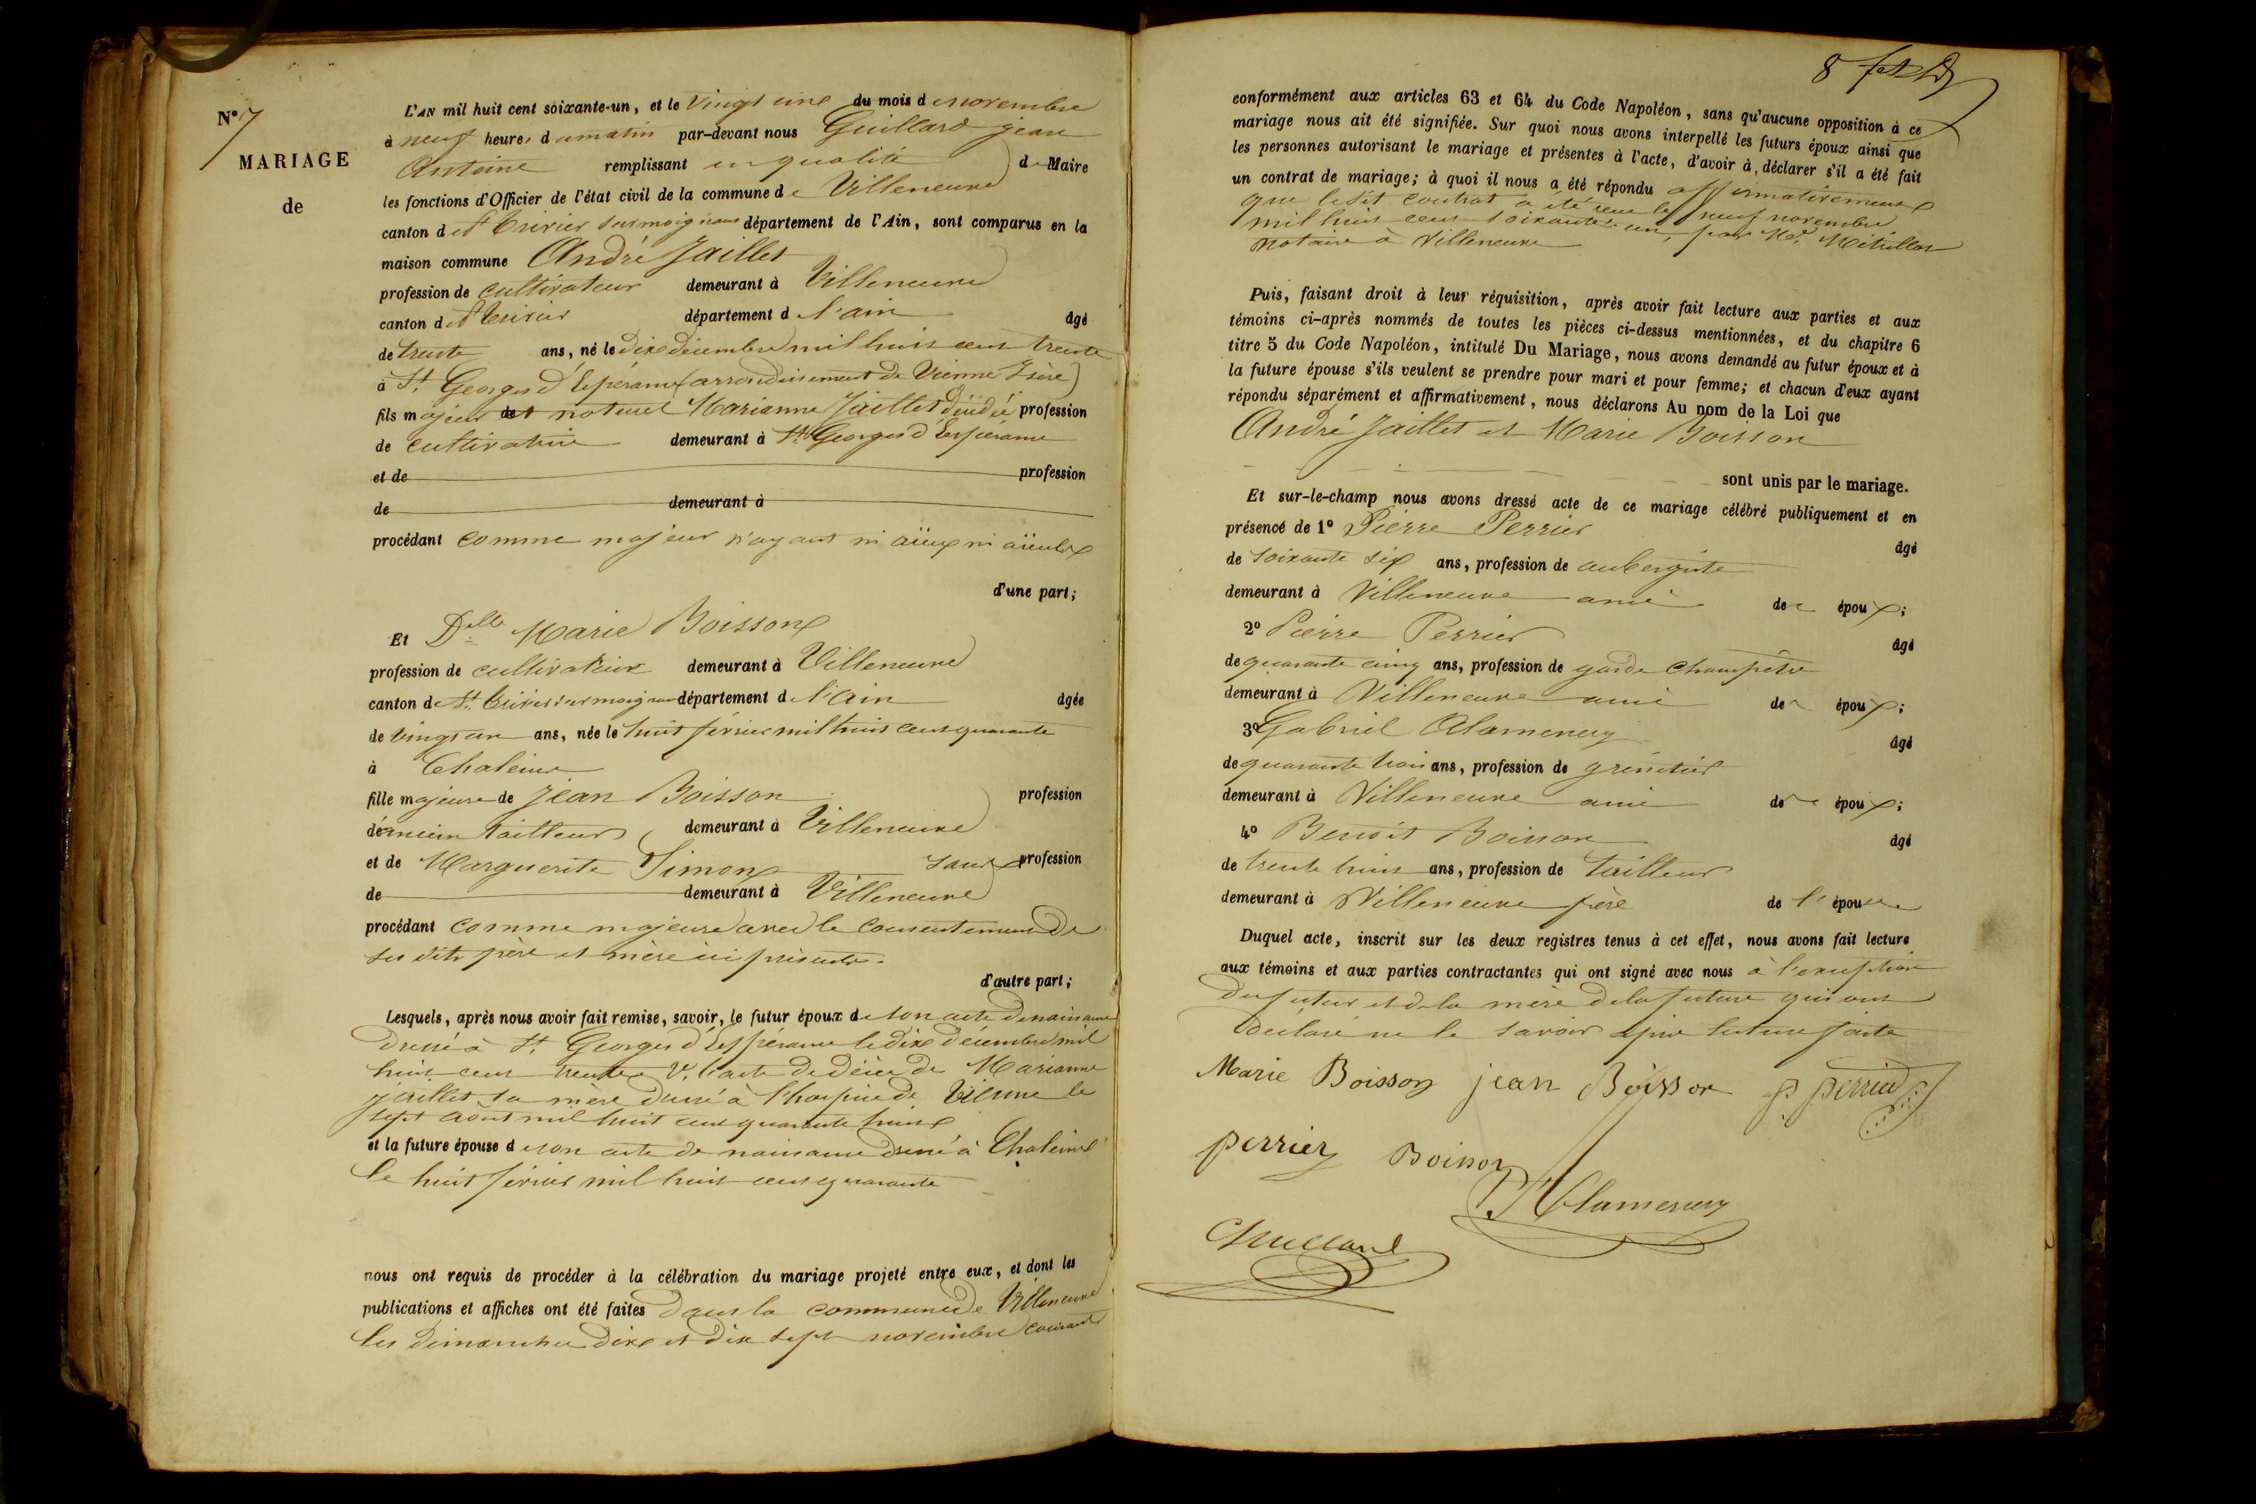 N° 7
MARIAGE
de
L'AN mil huit cent soixante-un, et le vingt une du mois de novembre
à neuf heures du matin par-devant nous Guillard jean
Antoine remplissant en qualité de Maire
les fonctions d'Officier de l'état civil de la commune de Villeneuve
canton de St Trivier sur moignans département de l'Ain, sont comparus en la
maison commune André Jaillet
profession de cultivateur demeurant à Villeneuve
canton de St Trivier département de l'ain âgé
de trente ans, né le dix décembre mil huit cent trente
à St Georges d'Espérance (arrondissement de Vienne Isère)
fils majeur et naturel Marianne Jaillet décédée profession
de cultivatrice demeurant à St Georges d'Espérance
et de profession
de demeurant à
procédant comme majeur n'ayant ni aïeux ni aïeules
d'une part;
Et Delle Marie Boisson
profession de cultivatrice demeurant à Villeneuve
canton de St Trivier sur moignans département de l'Ain âgée
de vingt un ans, née le huit février mil huit cent quarante
à Chaleins
fille majeure de Jean Boisson profession
d'ancien tailleur demeurant à Villeneuve
et de Marguerite Simon sans profession
de demeurant à Villeneuve
procédant comme majeure avec le consentement de
ses dits père et mère ici présents.
d'autre part;
Lesquels, après nous avoir fait remise, savoir, le futur époux de son acte de naissance
dressé à St Georges d'Espérance le dix décembre mil
huit cent trente l'acte de décès de Marianne
jaillet sa mère dressé à l'hospice de Vienne le
sept août mil huit cent quarante huit
et la future épouse de son acte de naissance dressé à Chaleins
le huit février mil huit cent quarante
nous ont requis de procéder à la célébration du mariage projeté entre eux, et dont les
publications et affiches ont été faites dans la commune de Villeneuve
les dimanches dix et dix sept novembre courant
8
conformément aux articles 63 et 64 du Code Napoléon, sans qu'aucune opposition à ce
mariage nous ait été signifiée. Sur quoi nous avons interpellé les futurs époux ainsi que
les personnes autorisant le mariage et présentes à l'acte, d'avoir à déclarer s'il a été fait
un contrat de mariage; à quoi il nous a été répondu affirmativement
que ledit contrat a été reçu le neuf novembre
mil huit cent soixante un, par Me Mitrillon
notaire à Villeneuve
Puis, faisant droit à leur réquisition, après avoir fait lecture aux parties et aux
témoins ci-après nommés de toutes les pièces ci-dessus mentionnées, et du chapitre 6
titre 5 du Code Napoléon, intitulé Du Mariage, nous avons demandé au futur époux et à
la future épouse s'ils veulent se prendre pour mari et pour femme; et chacun d'eux ayant
répondu séparément et affirmativement, nous déclarons Au nom de la Loi que
André Jaillet et Marie Boisson
sont unis par le mariage.
Et sur-le-champ nous avons dressé acte de ce mariage célébré publiquement et en
présence de 1° Pierre Perrier âgé
de soixante six ans, profession de aubergiste
demeurant à Villeneuve ami des époux;
2° Pierre Perrier âgé
de quarante cinq ans, profession de garde champêtre
demeurant à Villeneuve ami des époux;
3° Gabriel Alamercery âgé
de quarante trois ans, profession de grenetier
demeurant à Villeneuve ami des époux;
4° Benoît Boisson âgé
de trente huit ans, profession de tailleur
demeurant à Villeneuve frère de l'épouse
Duquel acte, inscrit sur les deux registres tenus à cet effet, nous avons fait lecture
aux témoins et aux parties contractantes qui ont signé avec nous à l'exception
du futur et de la mère de la future qui ont
déclaré ne le savoir après lecture faite
Marie Boisson jean Boisson p perrier
perrier Boisson
Alamercery
Guillard